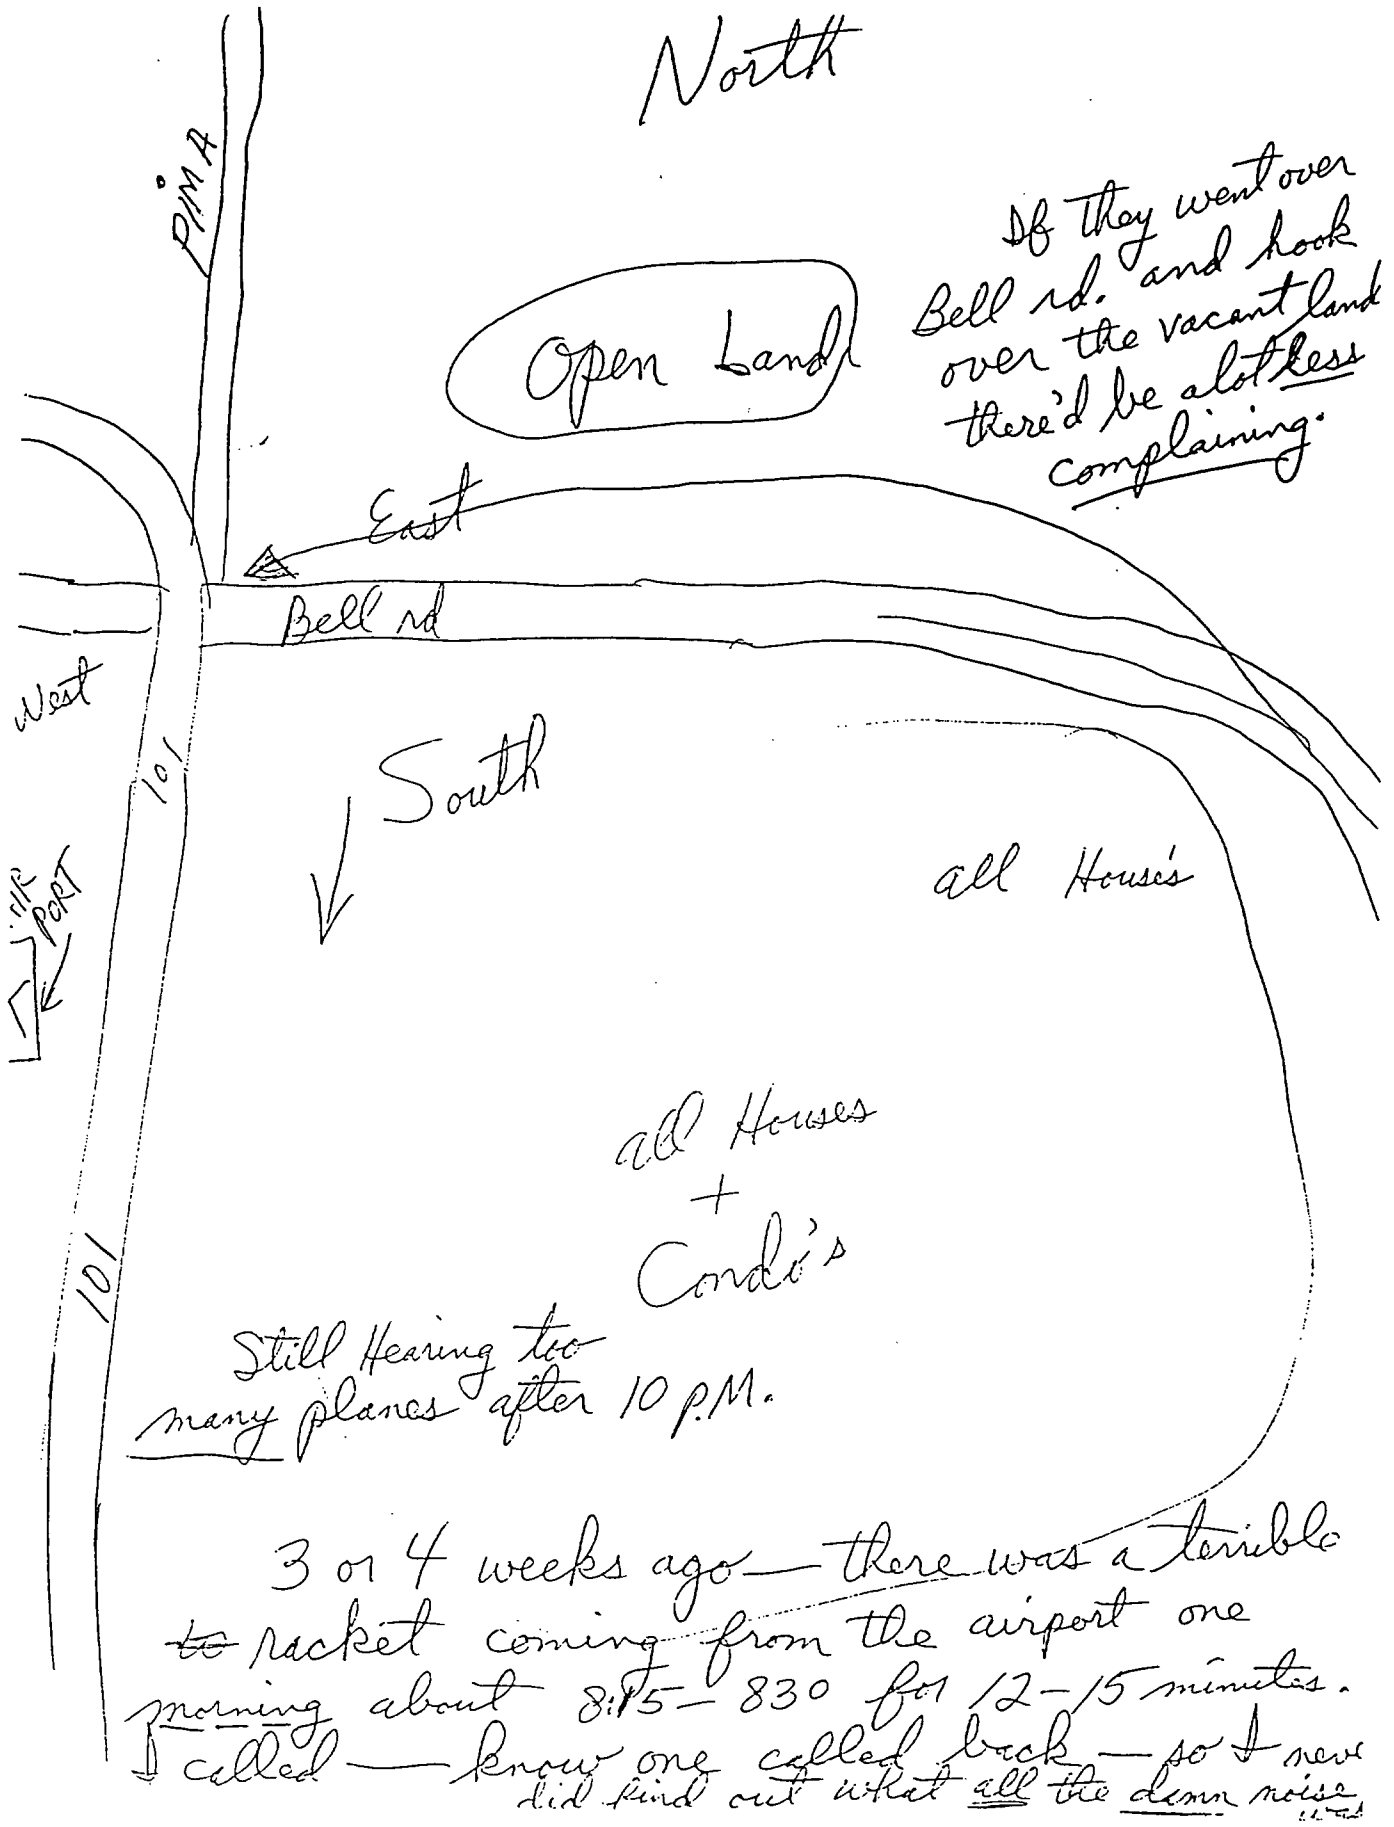 North
PIMA
If they went over
Bell rd. and hook
over the vacant land
there'd be alot less
complaining.
Open Land
East
Bell rd
West
101
South
AIR
PORT
all House's
all Houses
+
Condo's
101
Still Hearing too
many planes after 10 P.M.
3 or 4 weeks ago — there was a terrible
to racket coming from the airport one
morning about 8:15 – 830 for 12 – 15 minutes.
I called — know one called back — so I never
did find out what all the damn noise
was